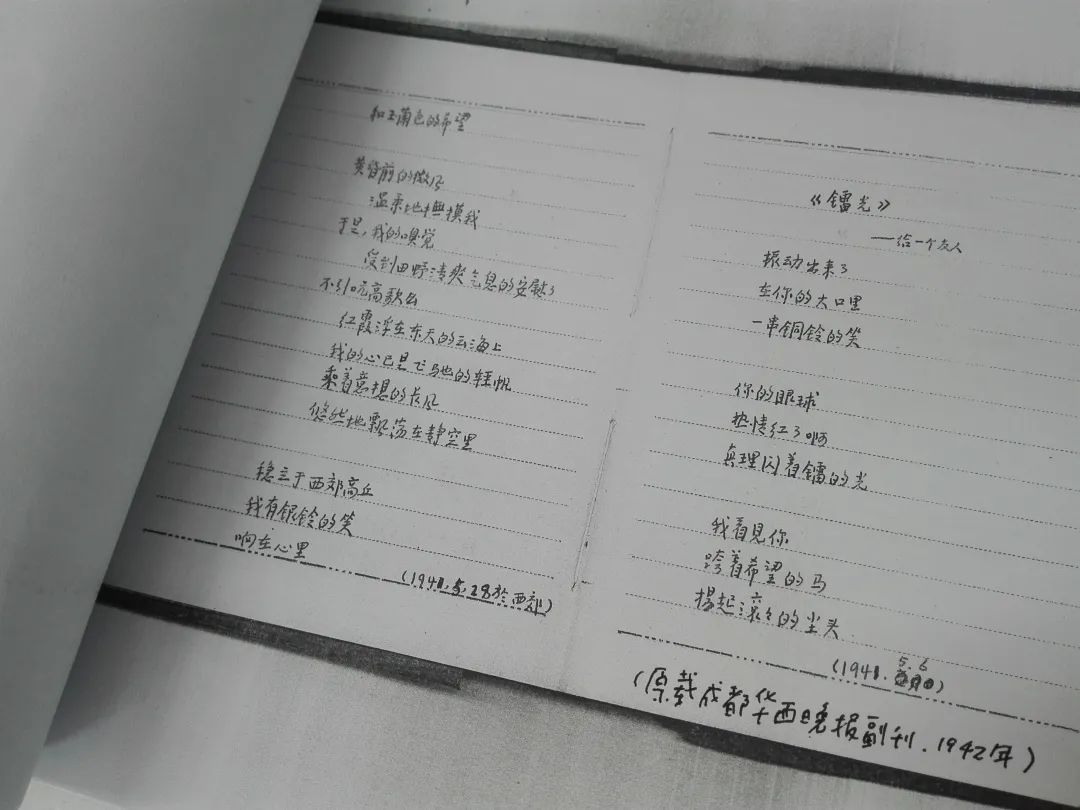 和玉蔺色的希望
黄昏前的微风
温柔地抚摸我
于是，我的嗅觉
得到田野清爽气息的安慰了
不引吭高歌么
红霞浮在东天的云海上
我的心已是它的轻帆
乘着意想的长风
悠然地飘荡在静空里
稳立于西郊高丘
我有银铃的笑
响在心里
(1941.5.28於西郊)
《镭光》
——给一个友人
振动出来了
在你的大口里
一串铜铃的笑
你的眼球
热情红了啊
真理闪着镭的光
我看見你
跨着希望的马
揚起滚々的尘头
(1941.5.6)
(原载成都华西晚报副刊.1942年)